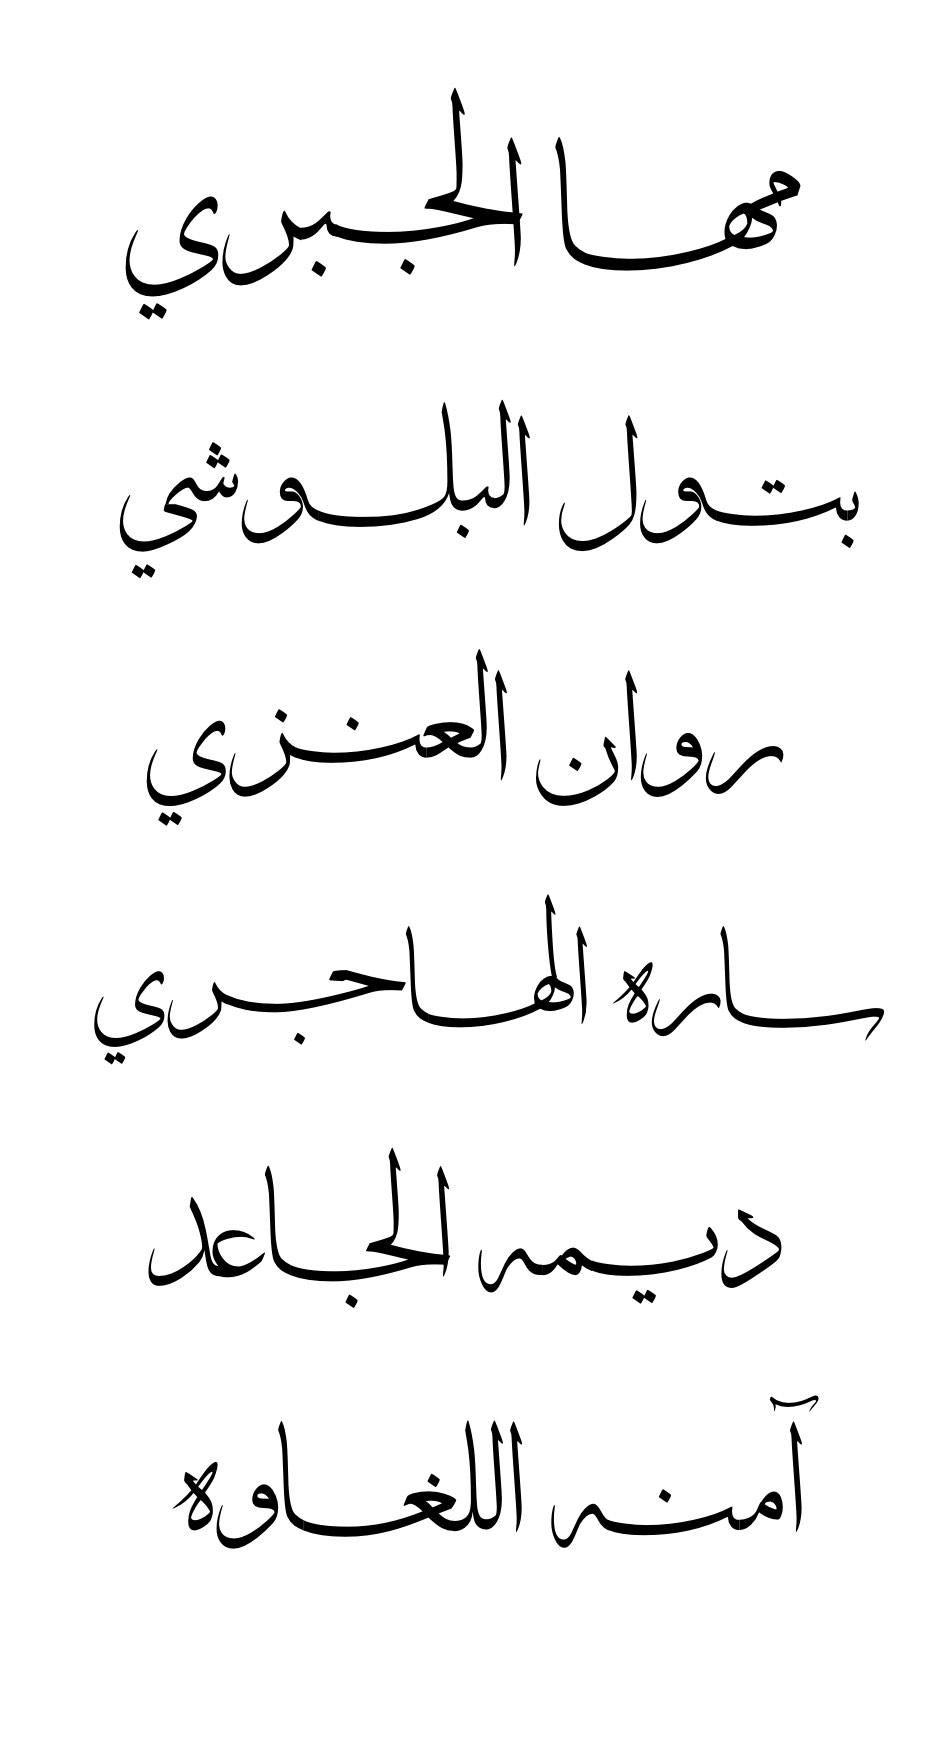 مها الجبري
بتول البلوشي
روان العنزي
ساره الهاجري
ديمه الجاعد
آمنه اللغاوه